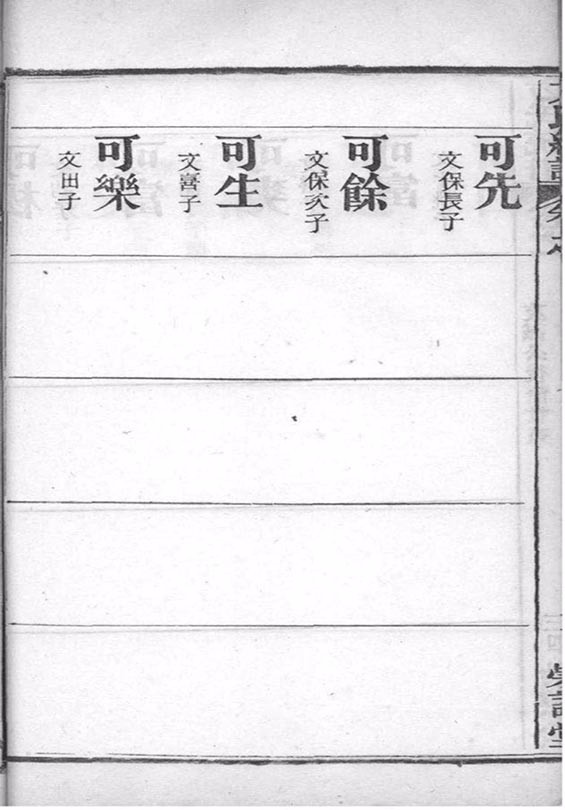 可先
文保長子
可餘
文保次子
可生
文喜子
可樂
文田子